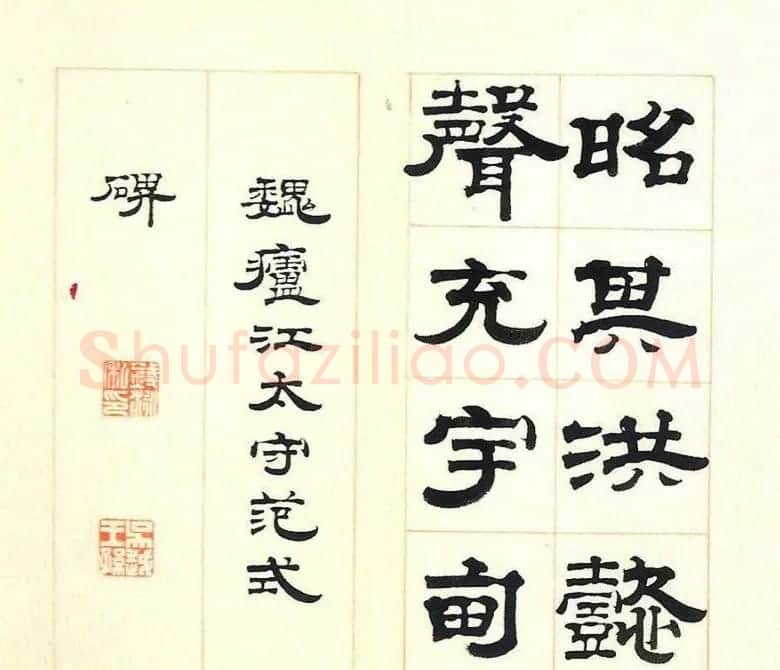 昭其洪懿
聲充宇甸
魏廬江太守范式
碑
Shufaziliao.COM